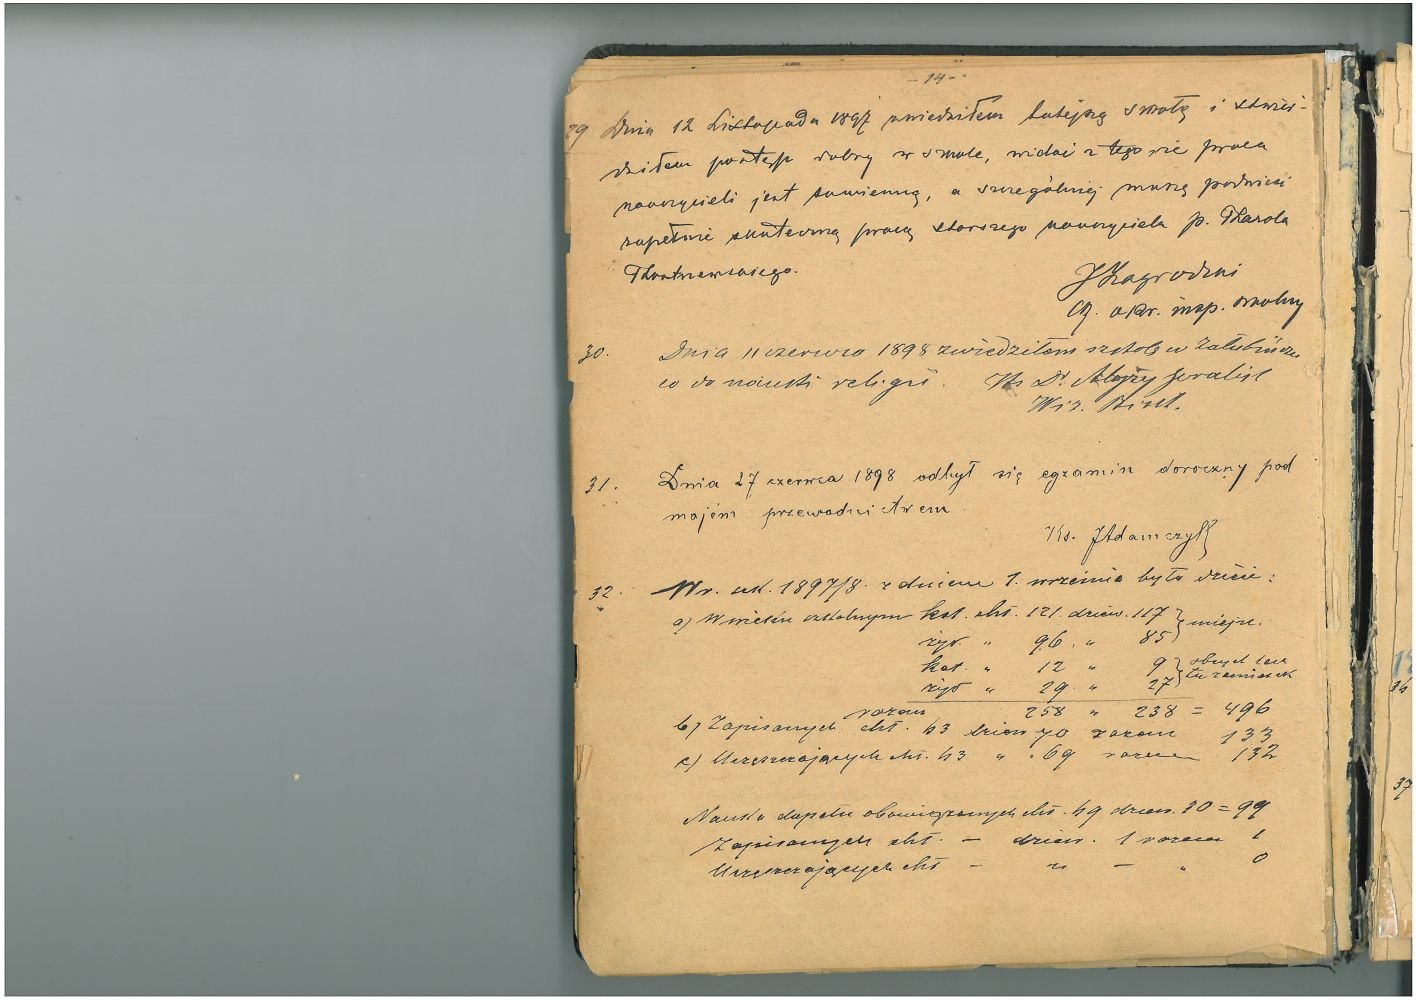 - 14 -
29 Dnia 12 Listopada 1897 zwiedziłem tutejszą szkołę i stwier-
dziłem postęp dobry w szkole, widać z tego że praca
nauczycieli jest sumienną, a szczególniej muszę podnieść
zupełnie skuteczną pracę starszego nauczyciela p. Karola
J Zagrodzki
okr. insp. szkolny
30. Dnia 11 czerwca 1898 zwiedziłem szkołę w Załubińczu
co do nauki religii. Ks Dr. Alojzy
Wiz. Bisk.
31. Dnia 27 czerwca 1898 odbył się egzamin doroczny pod
mojém przewodnictwem.
Ks. J Adamczyk
32. W r. szk. 1897/8 z dniem 1. września było dzieci:
a) W wieku szkolnym kat. chł. 121. dziew. 117 } miejsc.
żyd " 96. " 85
kat. " 12 " 9 } obcych lecz
żyd " 29. " 27 tu zamieszk
razem 258 " 238 = 496
b) Zapisanych chł. 63 dziew 70 razem 133
c) Uczęszczających chł. 63 " 69 razem 132
Nauka dopełn obowiązanych chł. 49 dziew. = 99
Zapisanych chł. - dziew. 1 razem 1
Uczęszczających chł - " - " 0
36
37